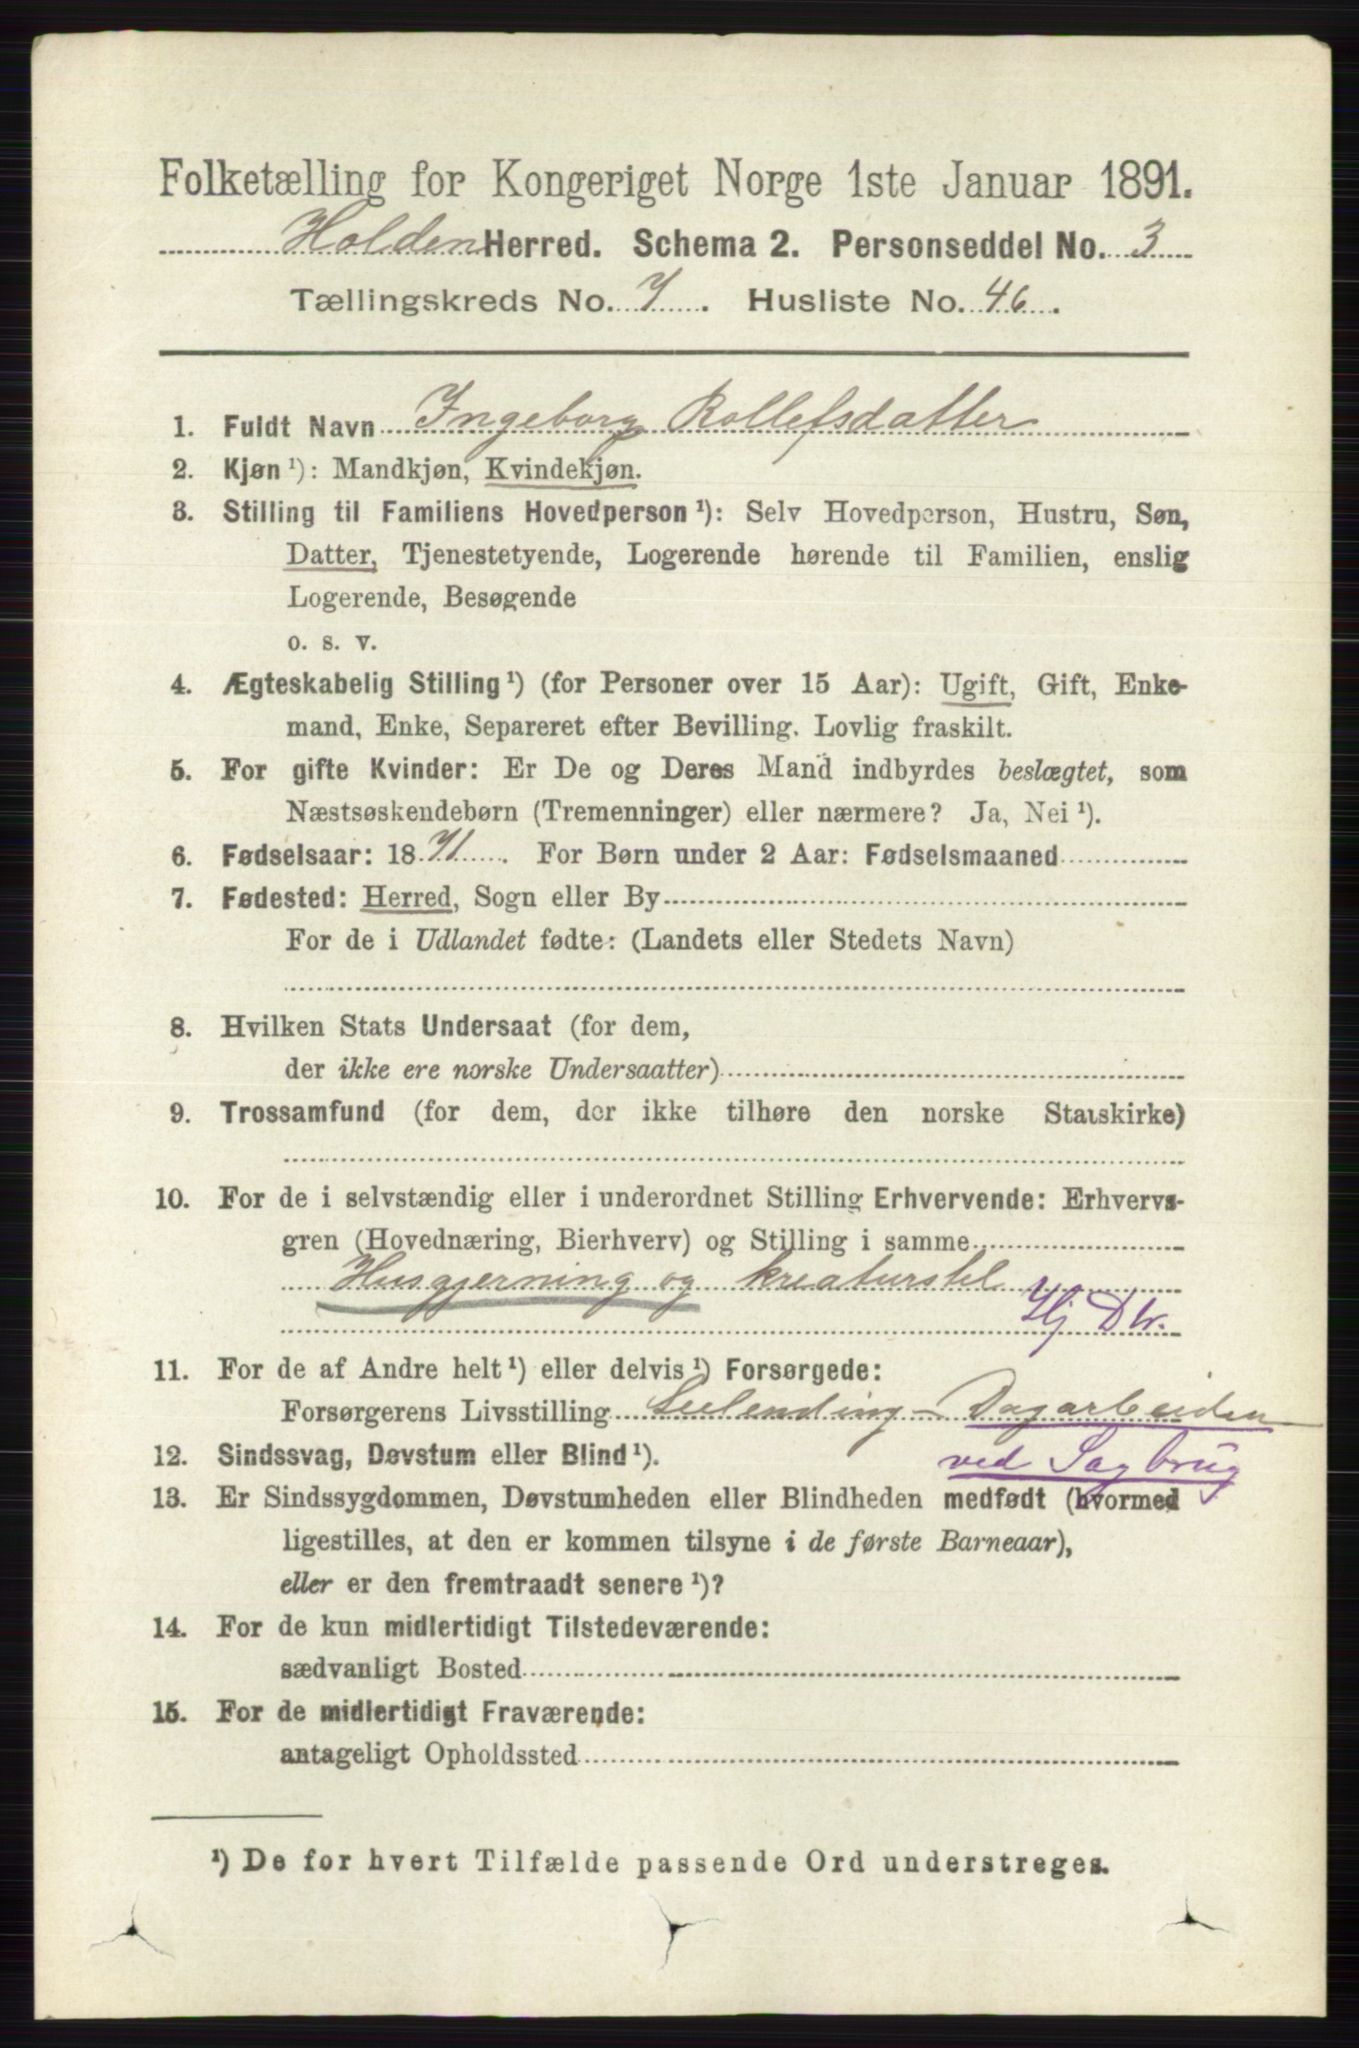 Folketælling for Kongeriget Norge 1ste Januar 1891.
Holden Herred. Schema 2. Personseddel No. 3
Tællingskreds No. 7. Husliste No. 46.
1. Fuldt Navn Ingeborg Rollefsdatter
2. Kjøn ¹): Mandkjøn, Kvindekjøn.
3. Stilling til Familiens Hovedperson ¹): Selv Hovedperson, Hustru, Søn,
Datter, Tjenestetyende, Logerende hørende til Familien, enslig
Logerende, Besøgende
o. s. v.
4. Ægteskabelig Stilling ¹) (for Personer over 15 Aar): Ugift, Gift, Enke-
mand, Enke, Separeret efter Bevilling. Lovlig fraskilt.
5. For gifte Kvinder: Er De og Deres Mand indbyrdes beslægtet, som
Næstsøskendebørn (Tremenninger) eller nærmere? Ja, Nei ¹).
6. Fødselsaar: 1871. For Børn under 2 Aar: Fødselsmaaned
7. Fødested: Herred, Sogn eller By
For de i Udlandet fødte: (Landets eller Stedets Navn)
8. Hvilken Stats Undersaat (for dem,
der ikke ere norske Undersaatter)
9. Trossamfund (for dem, der ikke tilhøre den norske Statskirke)
10. For de i selvstændig eller i underordnet Stilling Erhvervende: Erhvervs-
gren (Hovednæring, Bierhverv) og Stilling i samme
Husgjerning og kreaturstel
Hj Dtr.
11. For de af Andre helt ¹) eller delvis ¹) Forsørgede:
Forsørgerens Livsstilling Selvending - Dagarbeiden
ved Sagbrug
12. Sindssvag, Døvstum eller Blind ¹).
13. Er Sindssygdommen, Døvstumheden eller Blindheden medfødt (hvormed
ligestilles, at den er kommen tilsyne i de første Barneaar),
eller er den fremtraadt senere ¹)?
14. For de kun midlertidigt Tilstedeværende:
sædvanligt Bosted
15. For de midlertidigt Fraværende:
antageligt Opholdssted
¹) De for hvert Tilfælde passende Ord understreges.